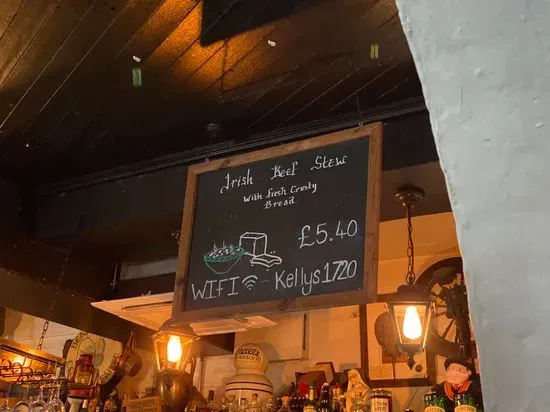 Irish Beef Stew
With fresh Crusty
Bread
£5.40
WIFI - Kellys1720